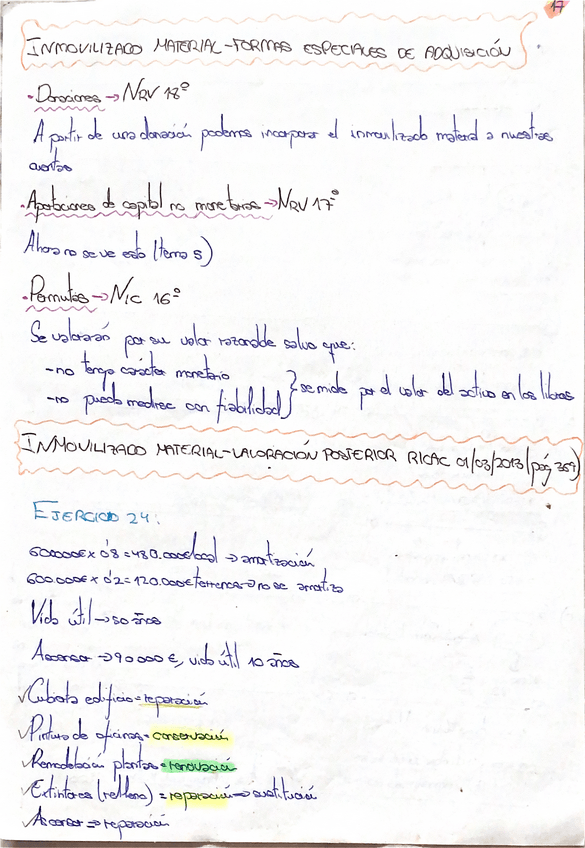 17
INMOVILIZADO MATERIAL-FORMAS ESPECIALES DE ADQUISICIÓN
·Donaciones→NRV 18º
A partir de una donación podemos incorporar el inmovilizado material a nuestras
cuentas
·Aportaciones de capital no monetarias→NRV 17º
Ahora no se ve esto (tema 5)
·Permutas→NIC 16º
Se valorarán por su valor razonable salvo que:
-no tenga carácter monetario
-no pueda medirse con fiabilidad} se mide por el valor del activo en los libros
INMOVILIZADO MATERIAL-VALORACIÓN POSTERIOR RICAC 01/03/2013 (pág 359)
EJERCICIO 24:
600000€ x 0'8=480.000€ local → amortización
600.000€ x 0'2=120.000€ terrenos→no se amortiza
Vida útil→50 años
Ascensor→90000€, vida útil 10 años
✓Cubierta edificio=reparación
✓Pintura de oficinas=conservación
✓Remodelación plantas=renovación
✓Extintores (rellena)=reparación⇒sustitución
✓Ascensor⇒reparación